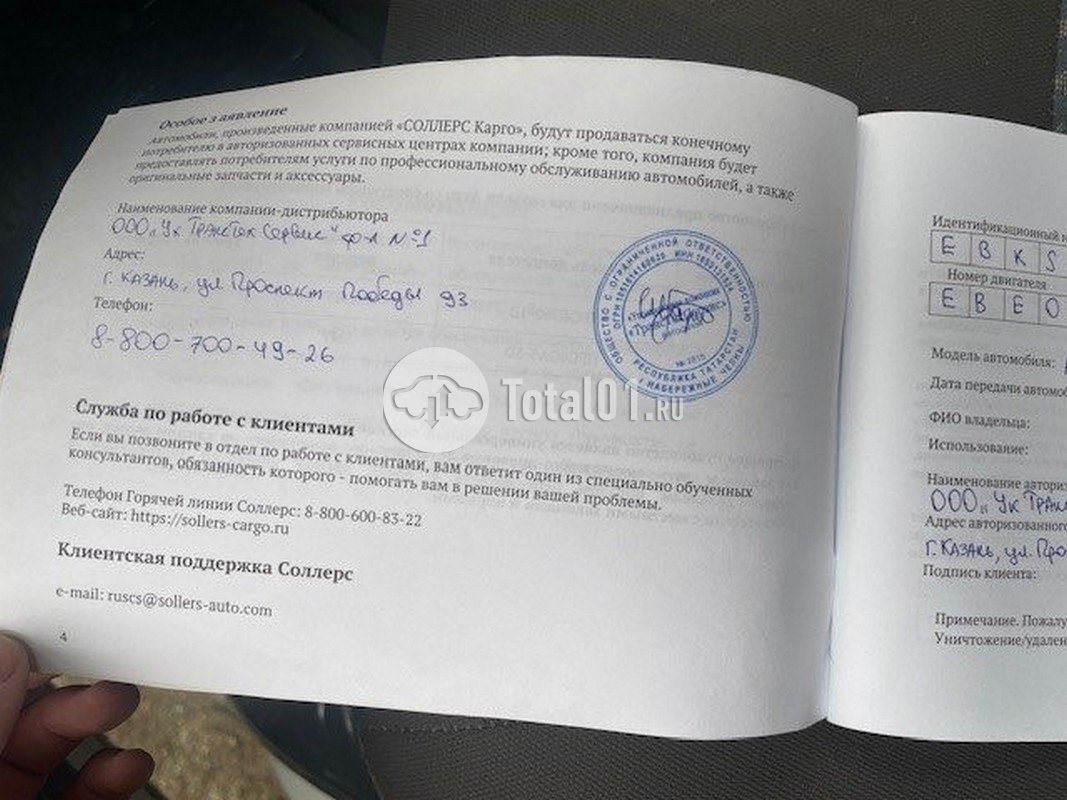 Особое з аявление
Автомобили, произведенные компанией «СОЛЛЕРС Карго», будут продаваться конечному
потребителю в авторизованных сервисных центрах компании; кроме того, компания будет
предоставлять потребителям услуги по профессиональному обслуживанию автомобилей, а также
оригинальные запчасти и аксессуары.
Наименование компании-дистрибьютора
ООО "УК ТрансТех Сервис" ф-л №1
Адрес:
г. Казань, ул Проспект Победы 93
Телефон:
8-800-700-49-26
ОБЩЕСТВО С ОГРАНИЧЕННОЙ ОТВЕТСТВЕННОСТЬЮ
РЕСПУБЛИКА ТАТАРСТАН
НАБЕРЕЖНЫЕ ЧЕЛНЫ
Total01.RU
Служба по работе с клиентами
Если вы позвоните в отдел по работе с клиентами, вам ответит один из специально обученных
консультантов, обязанность которого - помогать вам в решении вашей проблемы.
Телефон Горячей линии Соллерс: 8-800-600-83-22
Веб-сайт: https://sollers-cargo.ru
Клиентская поддержка Соллерс
e-mail: ruscs@sollers-auto.com
4
Идентификационный
E B K S
Номер двигателя
E B E 0
Модель автомобиля:
Дата передачи
ФИО владельца:
Использование:
Наименование
ООО "УК
Адрес авторизованного
г. Казань, ул.
Подпись клиента:
Примечание.